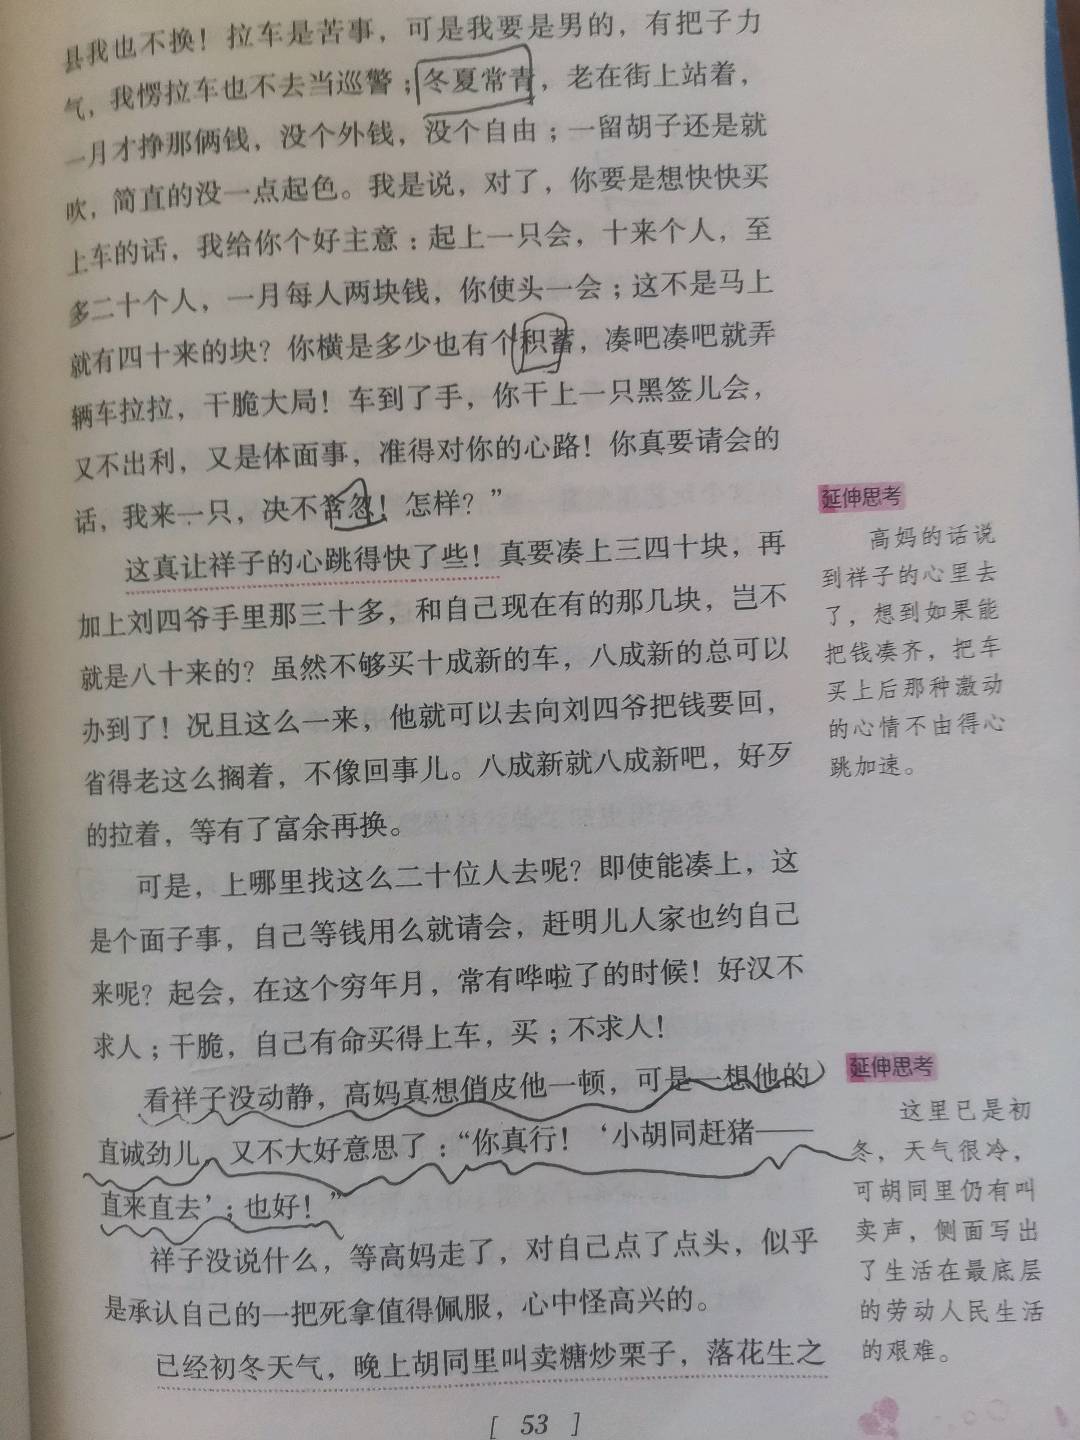 县我也不换！拉车是苦事，可是我要是男的，有把子力
气，我愣拉车也不去当巡警；冬夏常青，老在街上站着，
一月才挣那俩钱，没个外钱，没个自由；一留胡子还是就
吹，简直的没一点起色。我是说，对了，你要是想快快买
上车的话，我给你个好主意：起上一只会，十来个人，至
多二十个人，一月每人两块钱，你使头一会；这不是马上
就有四十来的块？你横是多少也有个积蓄，凑吧凑吧就弄
辆车拉拉，干脆大局！车到了手，你干上一只黑签儿会，
又不出利，又是体面事，准得对你的心路！你真要请会的
话，我来一只，决不含忽！怎样？”
这真让祥子的心跳得快了些！真要凑上三四十块，再
加上刘四爷手里那三十多，和自己现在有的那几块，岂不
就是八十来的？虽然不够买十成新的车，八成新的总可以
办到了！况且这么一来，他就可以去向刘四爷把钱要回，
省得老这么搁着，不像回事儿。八成新就八成新吧，好歹
的拉着，等有了富余再换。
可是，上哪里找这么二十位人去呢？即使能凑上，这
是个面子事，自己等钱用么就请会，赶明儿人家也约自己
来呢？起会，在这个穷年月，常有哗啦了的时候！好汉不
求人；干脆，自己有命买得上车，买；不求人！
看祥子没动静，高妈真想俏皮他一顿，可是一想他的
直诚劲儿，又不大好意思了：“你真行！‘小胡同赶猪——
直来直去’；也好！”
祥子没说什么，等高妈走了，对自己点了点头，似乎
是承认自己的一把死拿值得佩服，心中怪高兴的。
已经初冬天气，晚上胡同里叫卖糖炒栗子，落花生之
[ 53 ]
延伸思考
高妈的话说
到祥子的心里去
了，想到如果能
把钱凑齐，把车
买上后那种激动
的心情不由得心
跳加速。
延伸思考
这里已是初
冬，天气很冷，
可胡同里仍有叫
卖声，侧面写出
了生活在最底层
的劳动人民生活
的艰难。